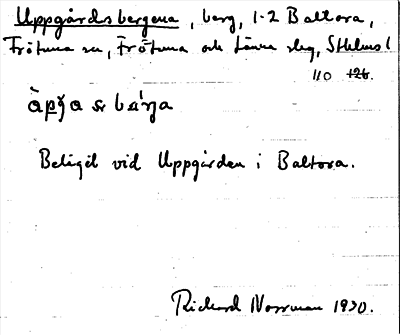 Uppgårdsbergena, berg, 1-2 Baltora,
Frötuna sn, Frötuna och Länna slg, Sthlms l
110 126.
Beläget vid Uppgården i Baltora.
Richard Norrman 1930.